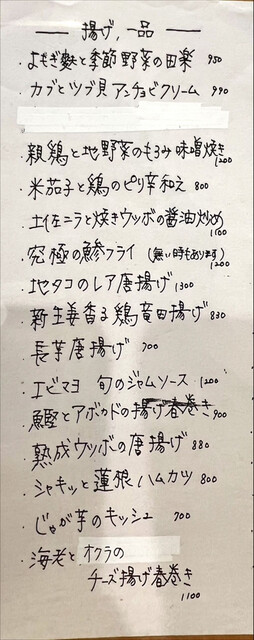 揚げ、一品
・よもぎ麩と季節野菜の田楽 950
・カブとツブ貝アンチョビクリーム 990
・親鶏と地野菜のもろみ味噌焼き
1200
・米茄子と鶏のピリ辛和え 800
・土佐ニラと焼きウツボの醤油炒め
1100
・究極の鯵フライ (無い時もあります)
1200
・地タコのレア唐揚げ 1300
・新生姜香る鶏竜田揚げ 830
・長芋唐揚げ 700
・エビマヨ 旬のジャムソース 1200
・鰹とアボカドの揚げ春巻き 900
・熟成ウツボの唐揚げ 880
・シャキッと蓮根ハムカツ 800
・じゃが芋のキッシュ 700
・海老と オクラの
チーズ揚げ春巻き
1100